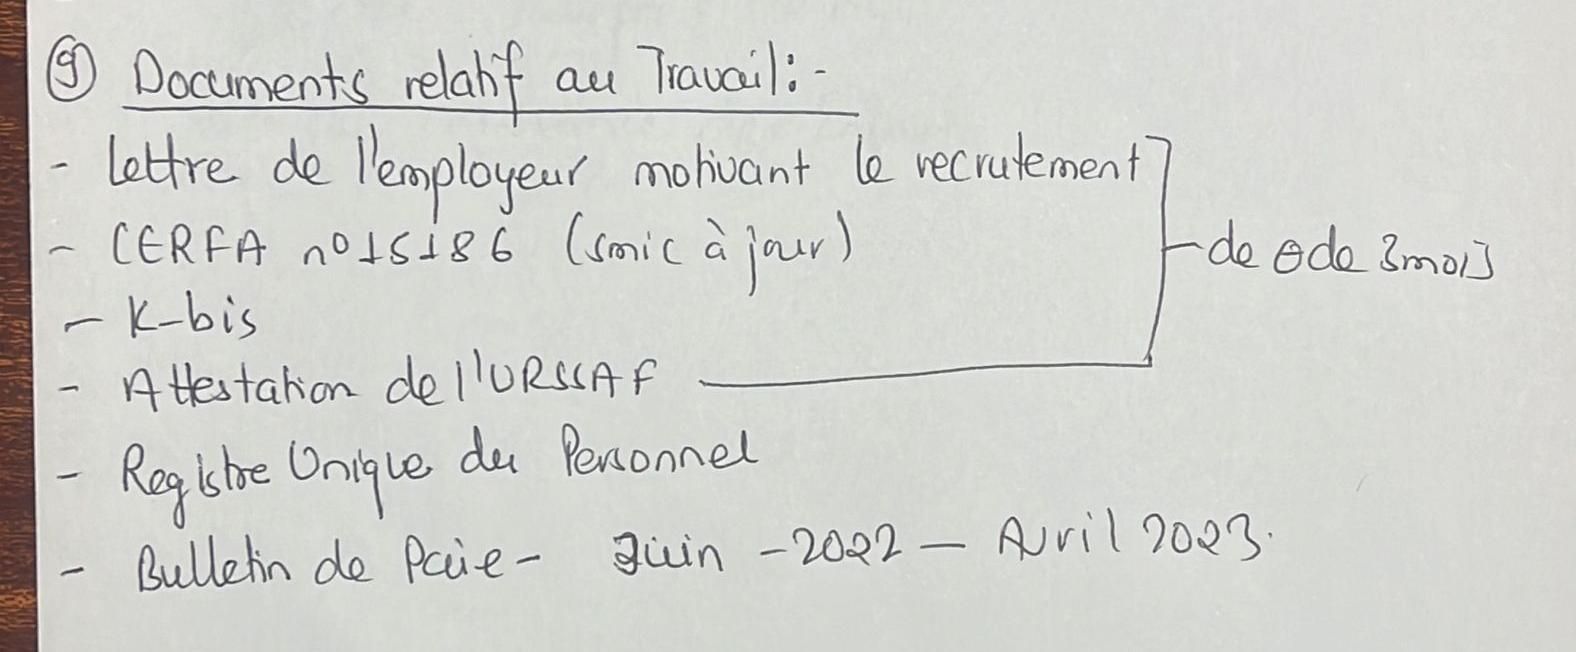 ⑨ Documents relatif au Travail:-
- Lettre de l'employeur motivant le recrutement
- CERFA n°15186 (smic à jour)
- de ⊖ de 3mois
- K-bis
- Attestation de l'URSSAF
- Registre Unique du Personnel
- Bulletin de Paie - Juin - 2022 - Avril 2023.